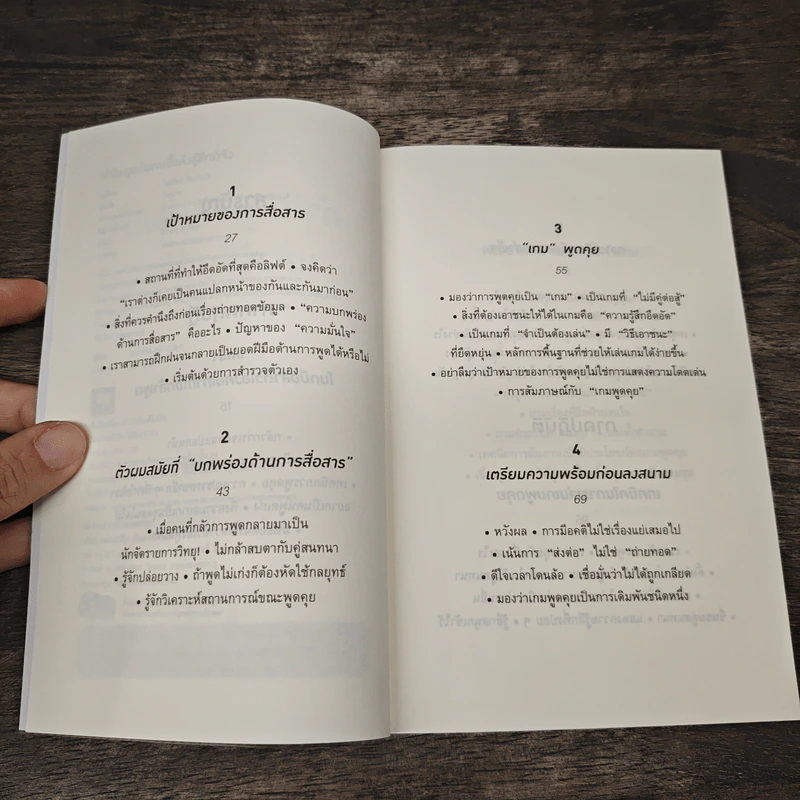 1
เป้าหมายของการสื่อสาร
27
• สถานที่ที่ทำให้อึดอัดที่สุดคือลิฟต์ • จงคิดว่า
“เราต่างก็เคยเป็นคนแปลกหน้าของกันและกันมาก่อน”
• สิ่งที่ควรคำนึงถึงก่อนเรื่องถ่ายทอดข้อมูล • “ความบกพร่อง
ด้านการสื่อสาร” คืออะไร • ปัญหาของ “ความมั่นใจ”
• เราสามารถฝึกฝนจนกลายเป็นยอดฝีมือด้านการพูดได้หรือไม่
• เริ่มต้นด้วยการสำรวจตัวเอง
2
ตัวผมสมัยที่ “บกพร่องด้านการสื่อสาร”
43
• เมื่อคนที่กลัวการพูดกลายมาเป็น
นักจัดรายการวิทยุ! • ไม่กล้าสบตากับคู่สนทนา
• รู้จักปล่อยวาง • ถ้าพูดไม่เก่งก็ต้องหัดใช้กลยุทธ์
• รู้จักวิเคราะห์สถานการณ์ขณะพูดคุย
3
“เกม” พูดคุย
55
• มองว่าการพูดคุยเป็น “เกม” • เป็นเกมที่ “ไม่มีคู่ต่อสู้”
• สิ่งที่ต้องเอาชนะให้ได้ในเกมคือ “ความรู้สึกอึดอัด”
• เป็นเกมที่ “จำเป็นต้องเล่น” • มี “วิธีเอาชนะ”
ที่ยืดหยุ่น • หลักการพื้นฐานที่ช่วยให้เล่นเกมได้ง่ายขึ้น
• อย่าลืมว่าเป้าหมายของการพูดคุยไม่ใช่การแสดงความโดดเด่น
• การสัมภาษณ์กับ “เกมพูดคุย”
4
เตรียมความพร้อมก่อนลงสนาม
69
• หวังผล • การมีอคติไม่ใช่เรื่องแย่เสมอไป
• เน้นการ “ส่งต่อ” ไม่ใช่ “ถ่ายทอด”
• ดีใจเวลาโดนล้อ • เชื่อมั่นว่าไม่ได้ถูกเกลียด
• มองว่าเกมพูดคุยเป็นการเดิมพันชนิดหนึ่ง